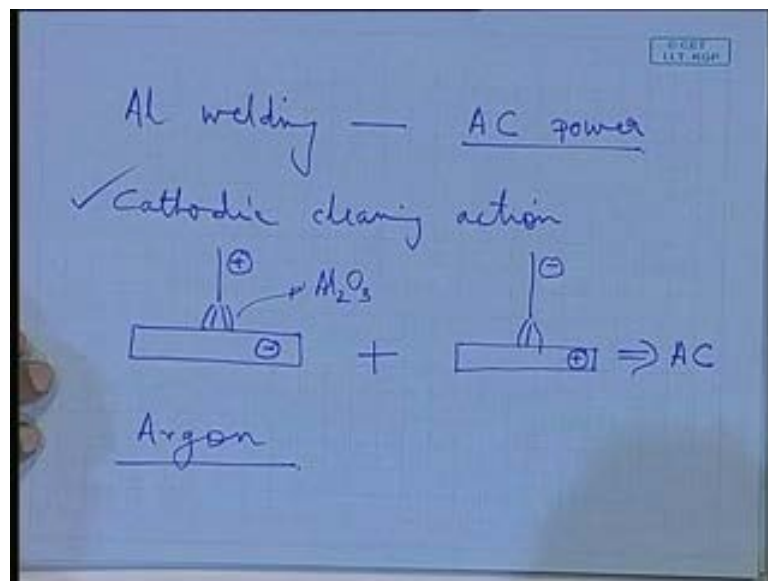 © CET
I.I.T. KGP
Al welding — AC power
✓ Cathodic cleaning action
⊕ Al₂O₃ ⊖
⊖ + ⊕ ⇒ AC
Argon